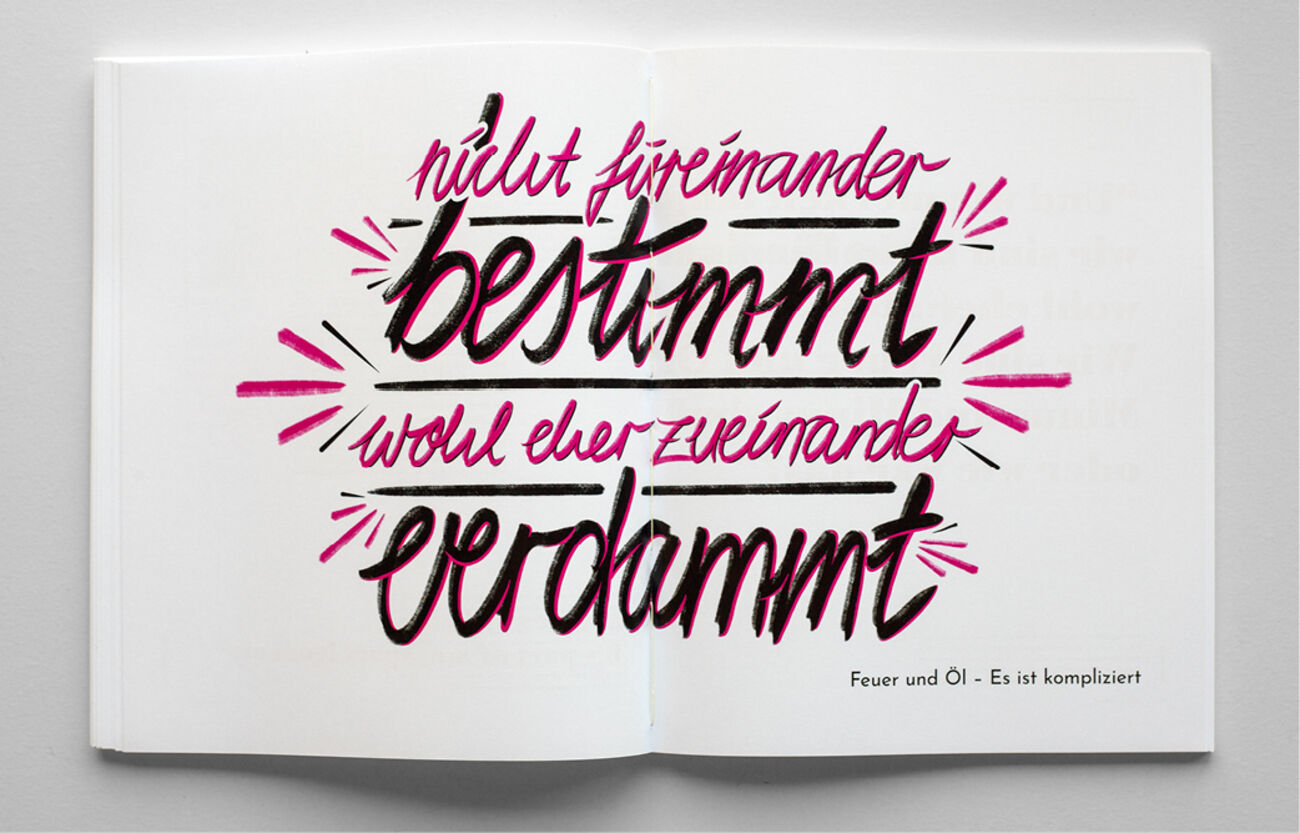 nicht füreinander
bestimmt
wohl eher zueinander
verdammt
Feuer und Öl – Es ist kompliziert